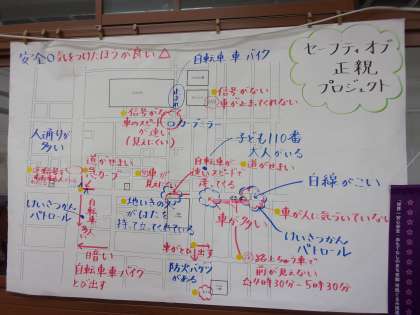 安全○ 気をつけたほうが良い△
セーフティ オブ
正親
プロジェクト
自転車 車 バイク
信号がない
車が止まってくれない
信号がなくて
車のスピードが
速い
(見えにくい)
カーブミラー
人通りが
多い
子ども110番
大人がいる
道がせまい
急カーブ
自転車が
速いスピードで
通ってくる
道がせまい
白線がこい
けいさつかん
パトロール
自転車多い
地いきの方が
はたを
持って立ってくれている
車が多い
車が人に気づいていない
けいさつかん
パトロール
暗い
自転車 車 バイク
とび出す
車がとび出す
防火バケツ
がある
路上ちゅう車で
前が見えない
4時30分-5時30分